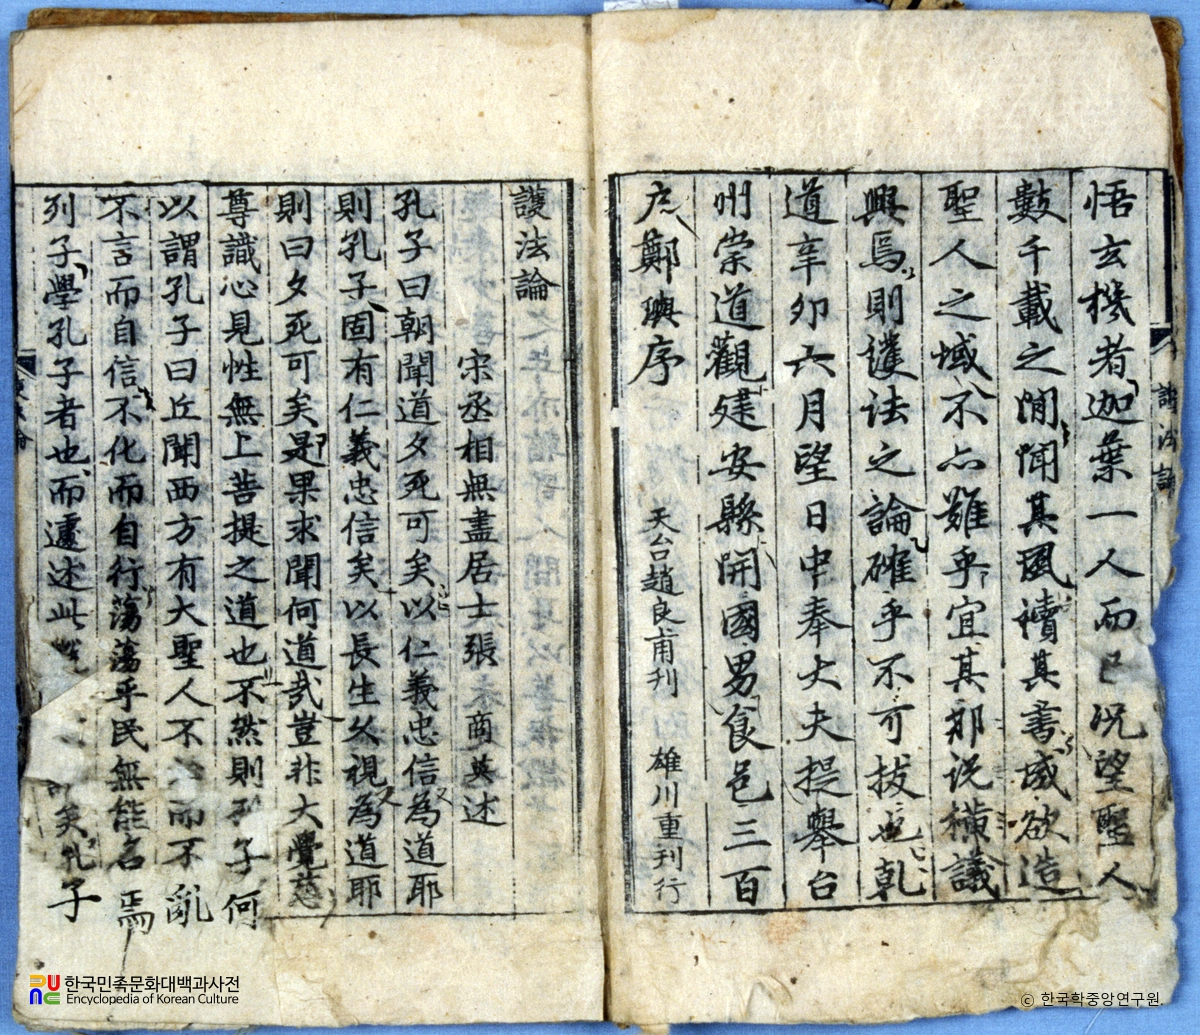 悟玄機者迦葉一人而已況望聖人
數千載之間聞其風讀其書域欲造
聖人之域不亦難乎宜其邪说橫議
興焉則護法之論確乎不可拔也乾
道辛卯六月望日中奉大夫提舉台
州崇道觀建安縣開國男食邑三百
户鄭璵序
天台趙良甫刊 雄川重刊行
護法論
宋丞相無盡居士張商英述
孔子曰朝聞道夕死可矣以仁義忠信為道耶
則孔子固有仁義忠信矣以長生久視為道耶
則曰夕死可矣是果求聞何道哉豈非大覺慈
尊識心見性無上菩提之道也不然則列子何
以謂孔子曰丘聞西方有大聖人不治而不亂
不言而自信不化而自行蕩蕩乎民無能名焉
列子學孔子者也而遽述此
矣孔子
護法論
한국민족문화대백과사전
Encyclopedia of Korean Culture
ⓒ 한국학중앙연구원